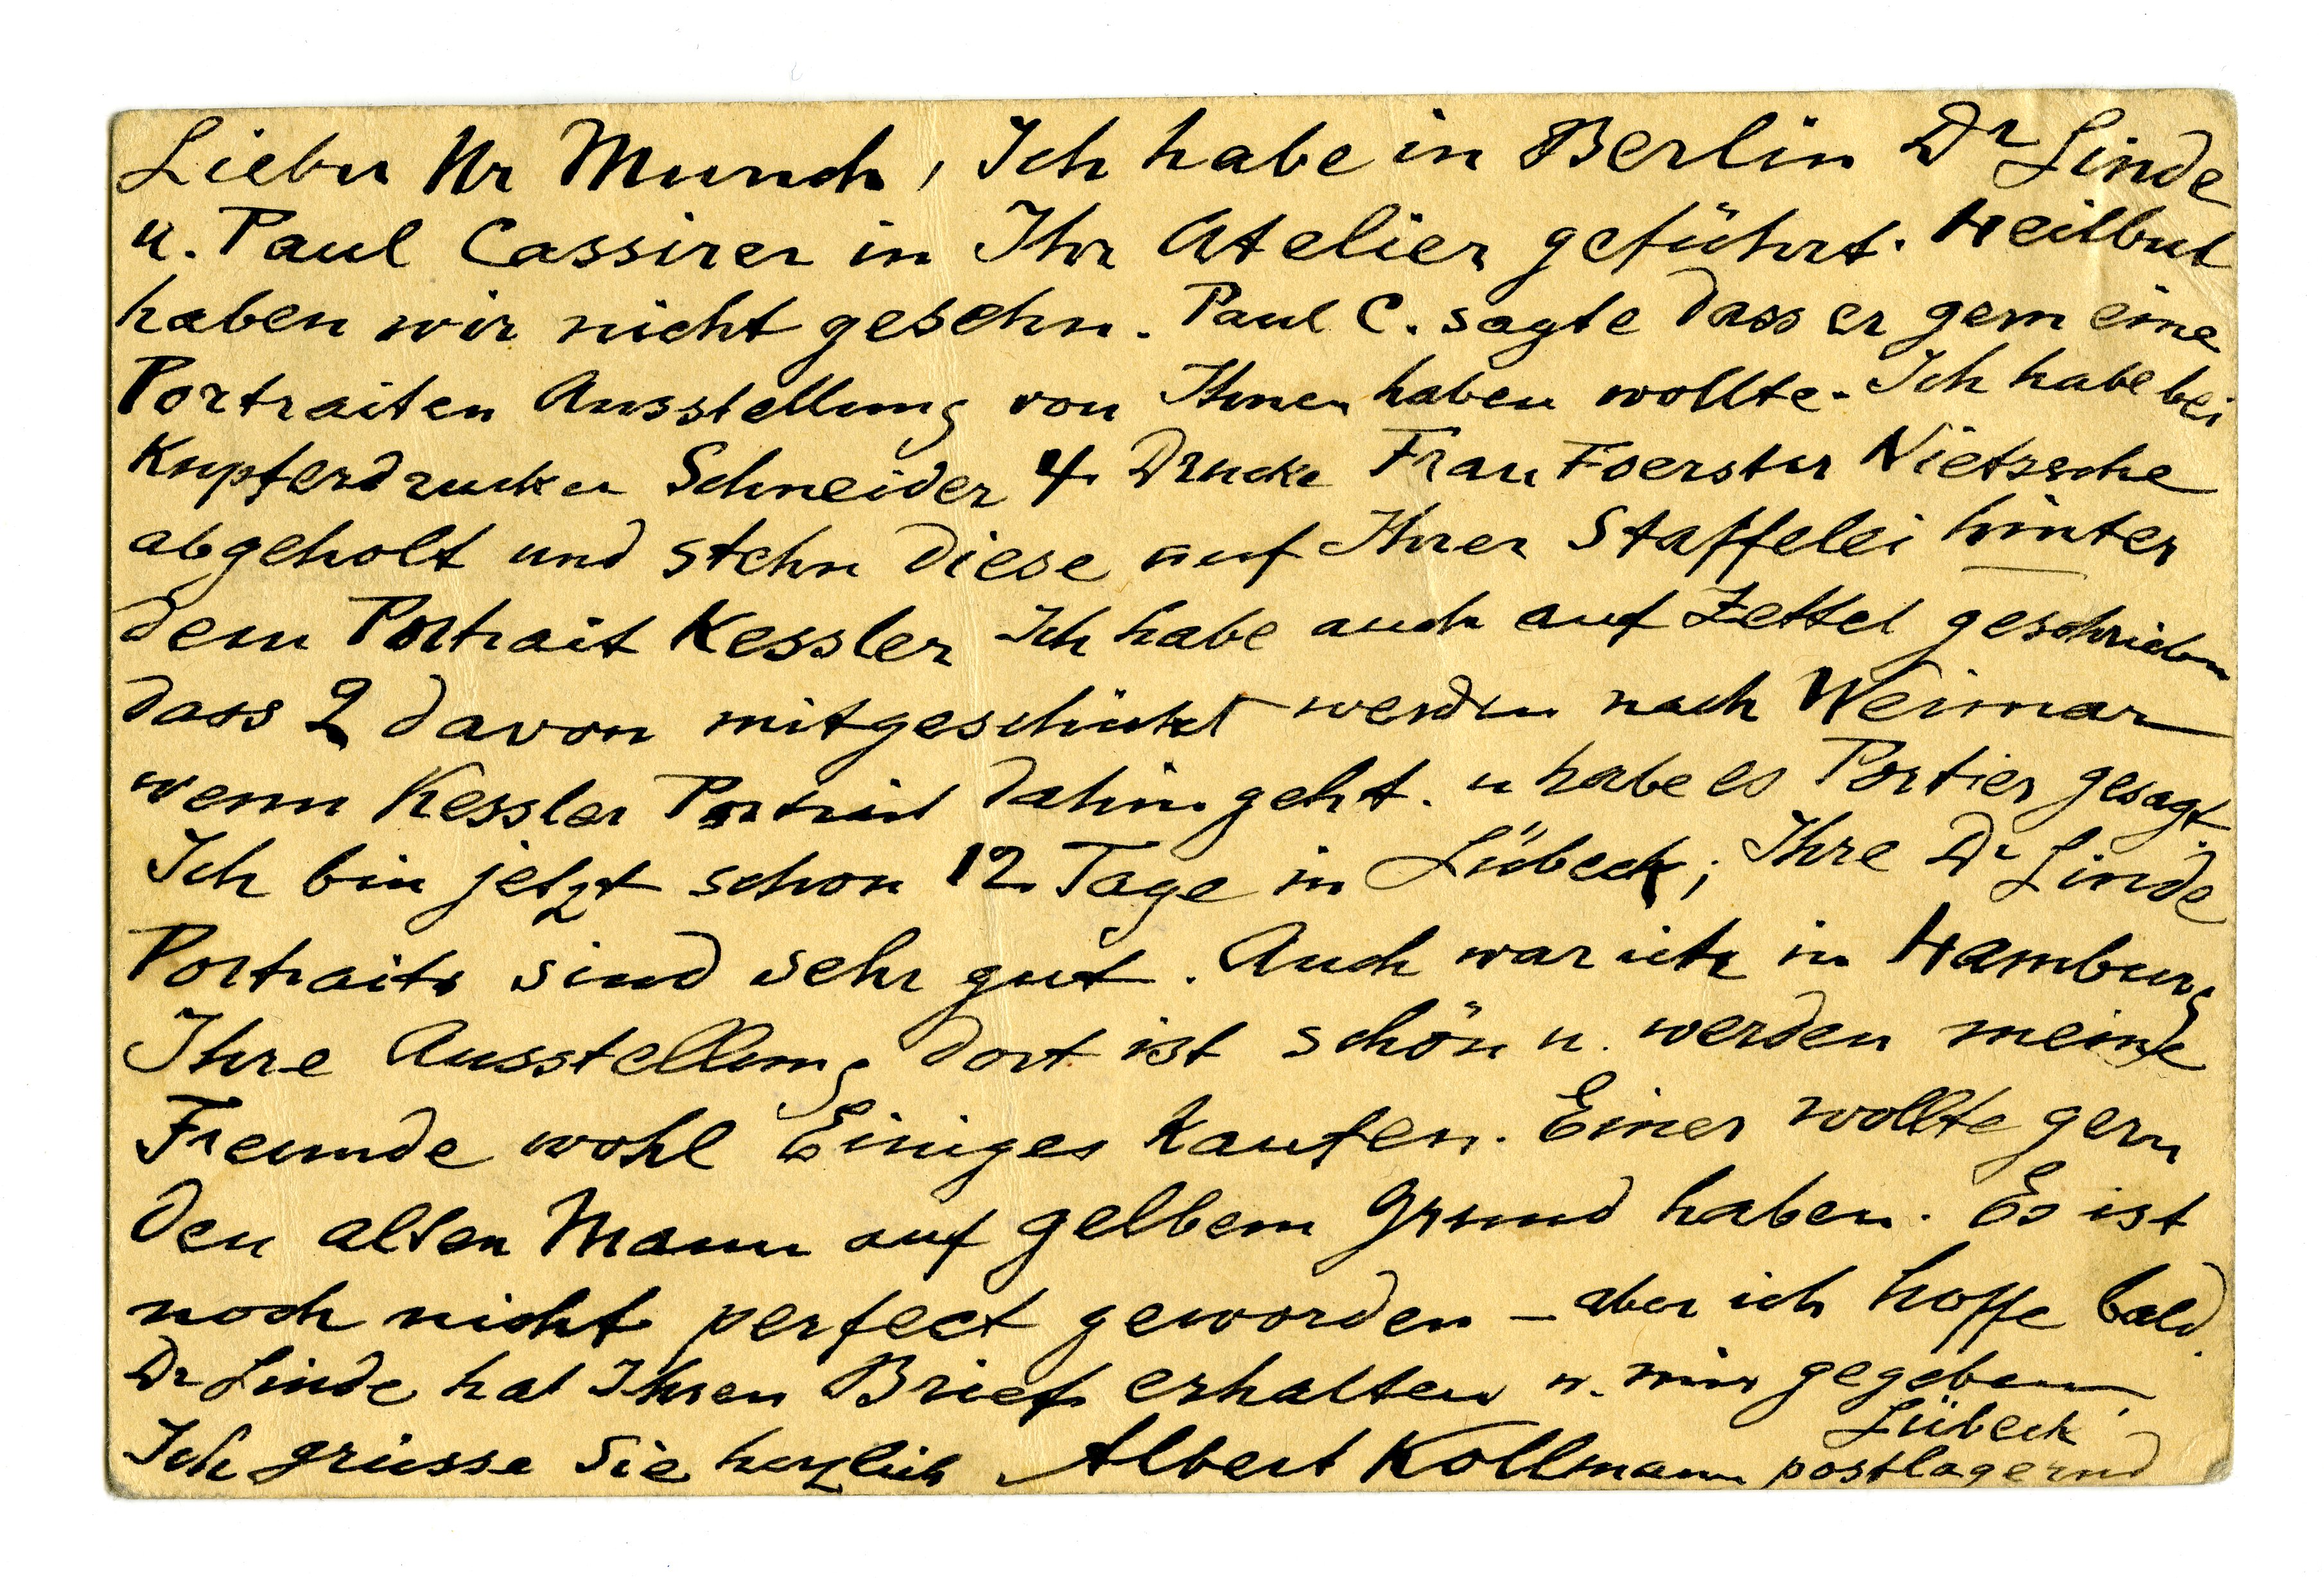 Lieber Hr Munch, Ich habe in Berlin Dr Linde
u. Paul Cassirer in Ihr Atelier geführt. Heilbut
haben wir nicht gesehn. Paul C. sagte dass er gern eine
Portraiten Ausstellung von Ihnen haben wollte. Ich habe bei
Kupferdrucker Schneider 4 Drucke Frau Foerster Nietzsche
abgeholt und stehn diese auf Ihrer Staffelei hinter
dem Portrait Kessler Ich habe auch auf Zettel geschrieben
dass 2 davon mitgeschickt werden nach Weimar
wenn Kessler Portrait dahin geht. u habe es Portier gesagt.
Ich bin jetzt schon 12 Tage in Lübeck; Ihre Dr Linde
Portraits sind sehr gut. Auch war ich in Hamburg
Ihre Ausstellung dort ist schön u. werden meine
Freunde wohl Einiges kaufen. Einer wollte gern
den alten Mann auf gelbem Grund haben. Es ist
noch nicht perfect geworden – aber ich hoffe bald.
Dr Linde hat Ihren Brief erhalten u. mir gegeben
Ich grüsse Sie herzlich Albert Kollmann
Lübeck
postlagernd